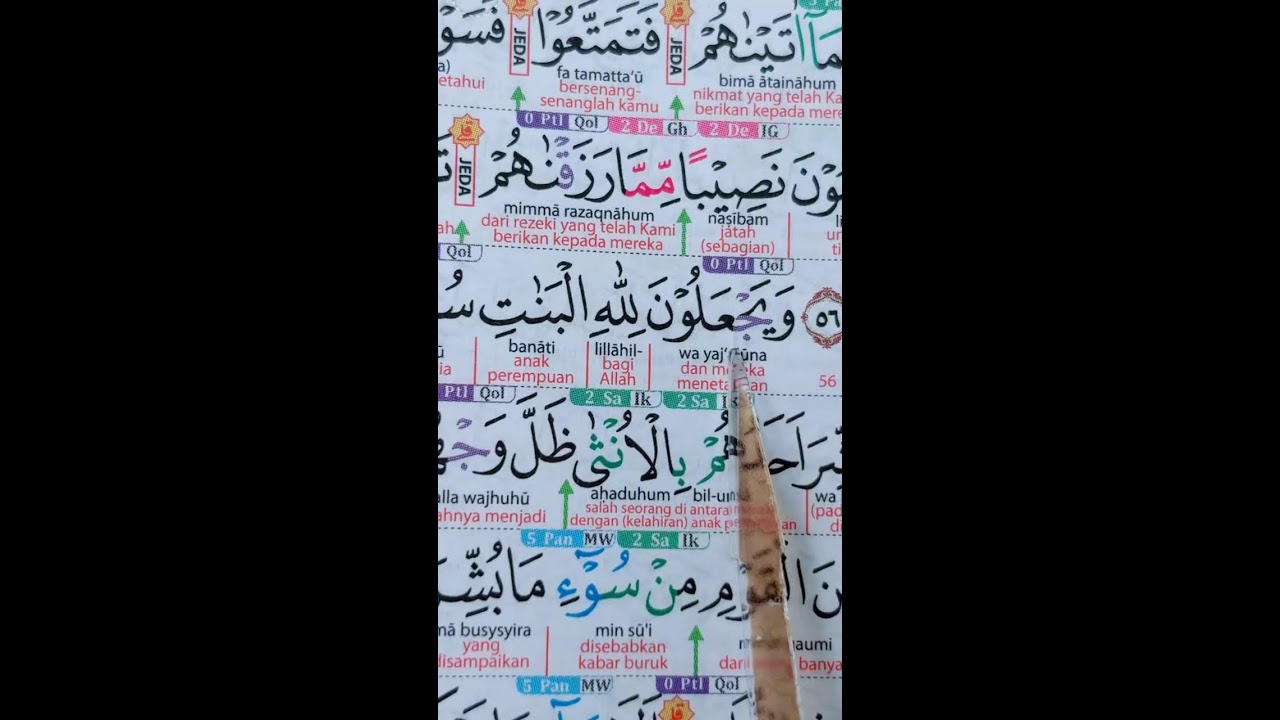 مَآ اٰتَيْنٰهُمْ ۗ فَتَمَتَّعُوْاۗ فَسَوْ
JEDA JEDA
bimā ātaināhum fa tamatta‘ū a)
nikmat yang telah Ka bersenang- etahui
berikan kepada mere senanglah kamu
2 De IG 2 De Gh 0 Ptl Qol
وْنَ نَصِيْبًا مِّمَّا رَزَقْنٰهُمْۗ
JEDA
li naṣībam mimmā razaqnāhum
un jatah dari rezeki yang telah Kami ah
ti (sebagian) berikan kepada mereka
0 Ptl Qol Qol
٥٦ وَيَجْعَلُوْنَ لِلّٰهِ الْبَنٰتِ سُ
wa yaj‘ ūna lillāhil- banāti ū
dan bagi anak ia
56 Allah perempuan
2 Sa 2 Sa Ik Ptl Qol
بُشِّرَ اَحَدُهُمْ بِالْاُنْثٰى ظَلَّ وَجْهُ
wa aḥaduhum alla wajhuhū
(pad salah seorang di antara ahnya menjadi
di dengan (kelahiran) anak
2 Sa Ik 5 Pan MW
نَ الْقَوْمِ مِنْ سُوْۤءِ مَا بُشِّرَ
aumi min sū'i mā busysyira
banya disebabkan yang
kabar buruk disampaikan
0 Ptl Qol 5 Pan MW